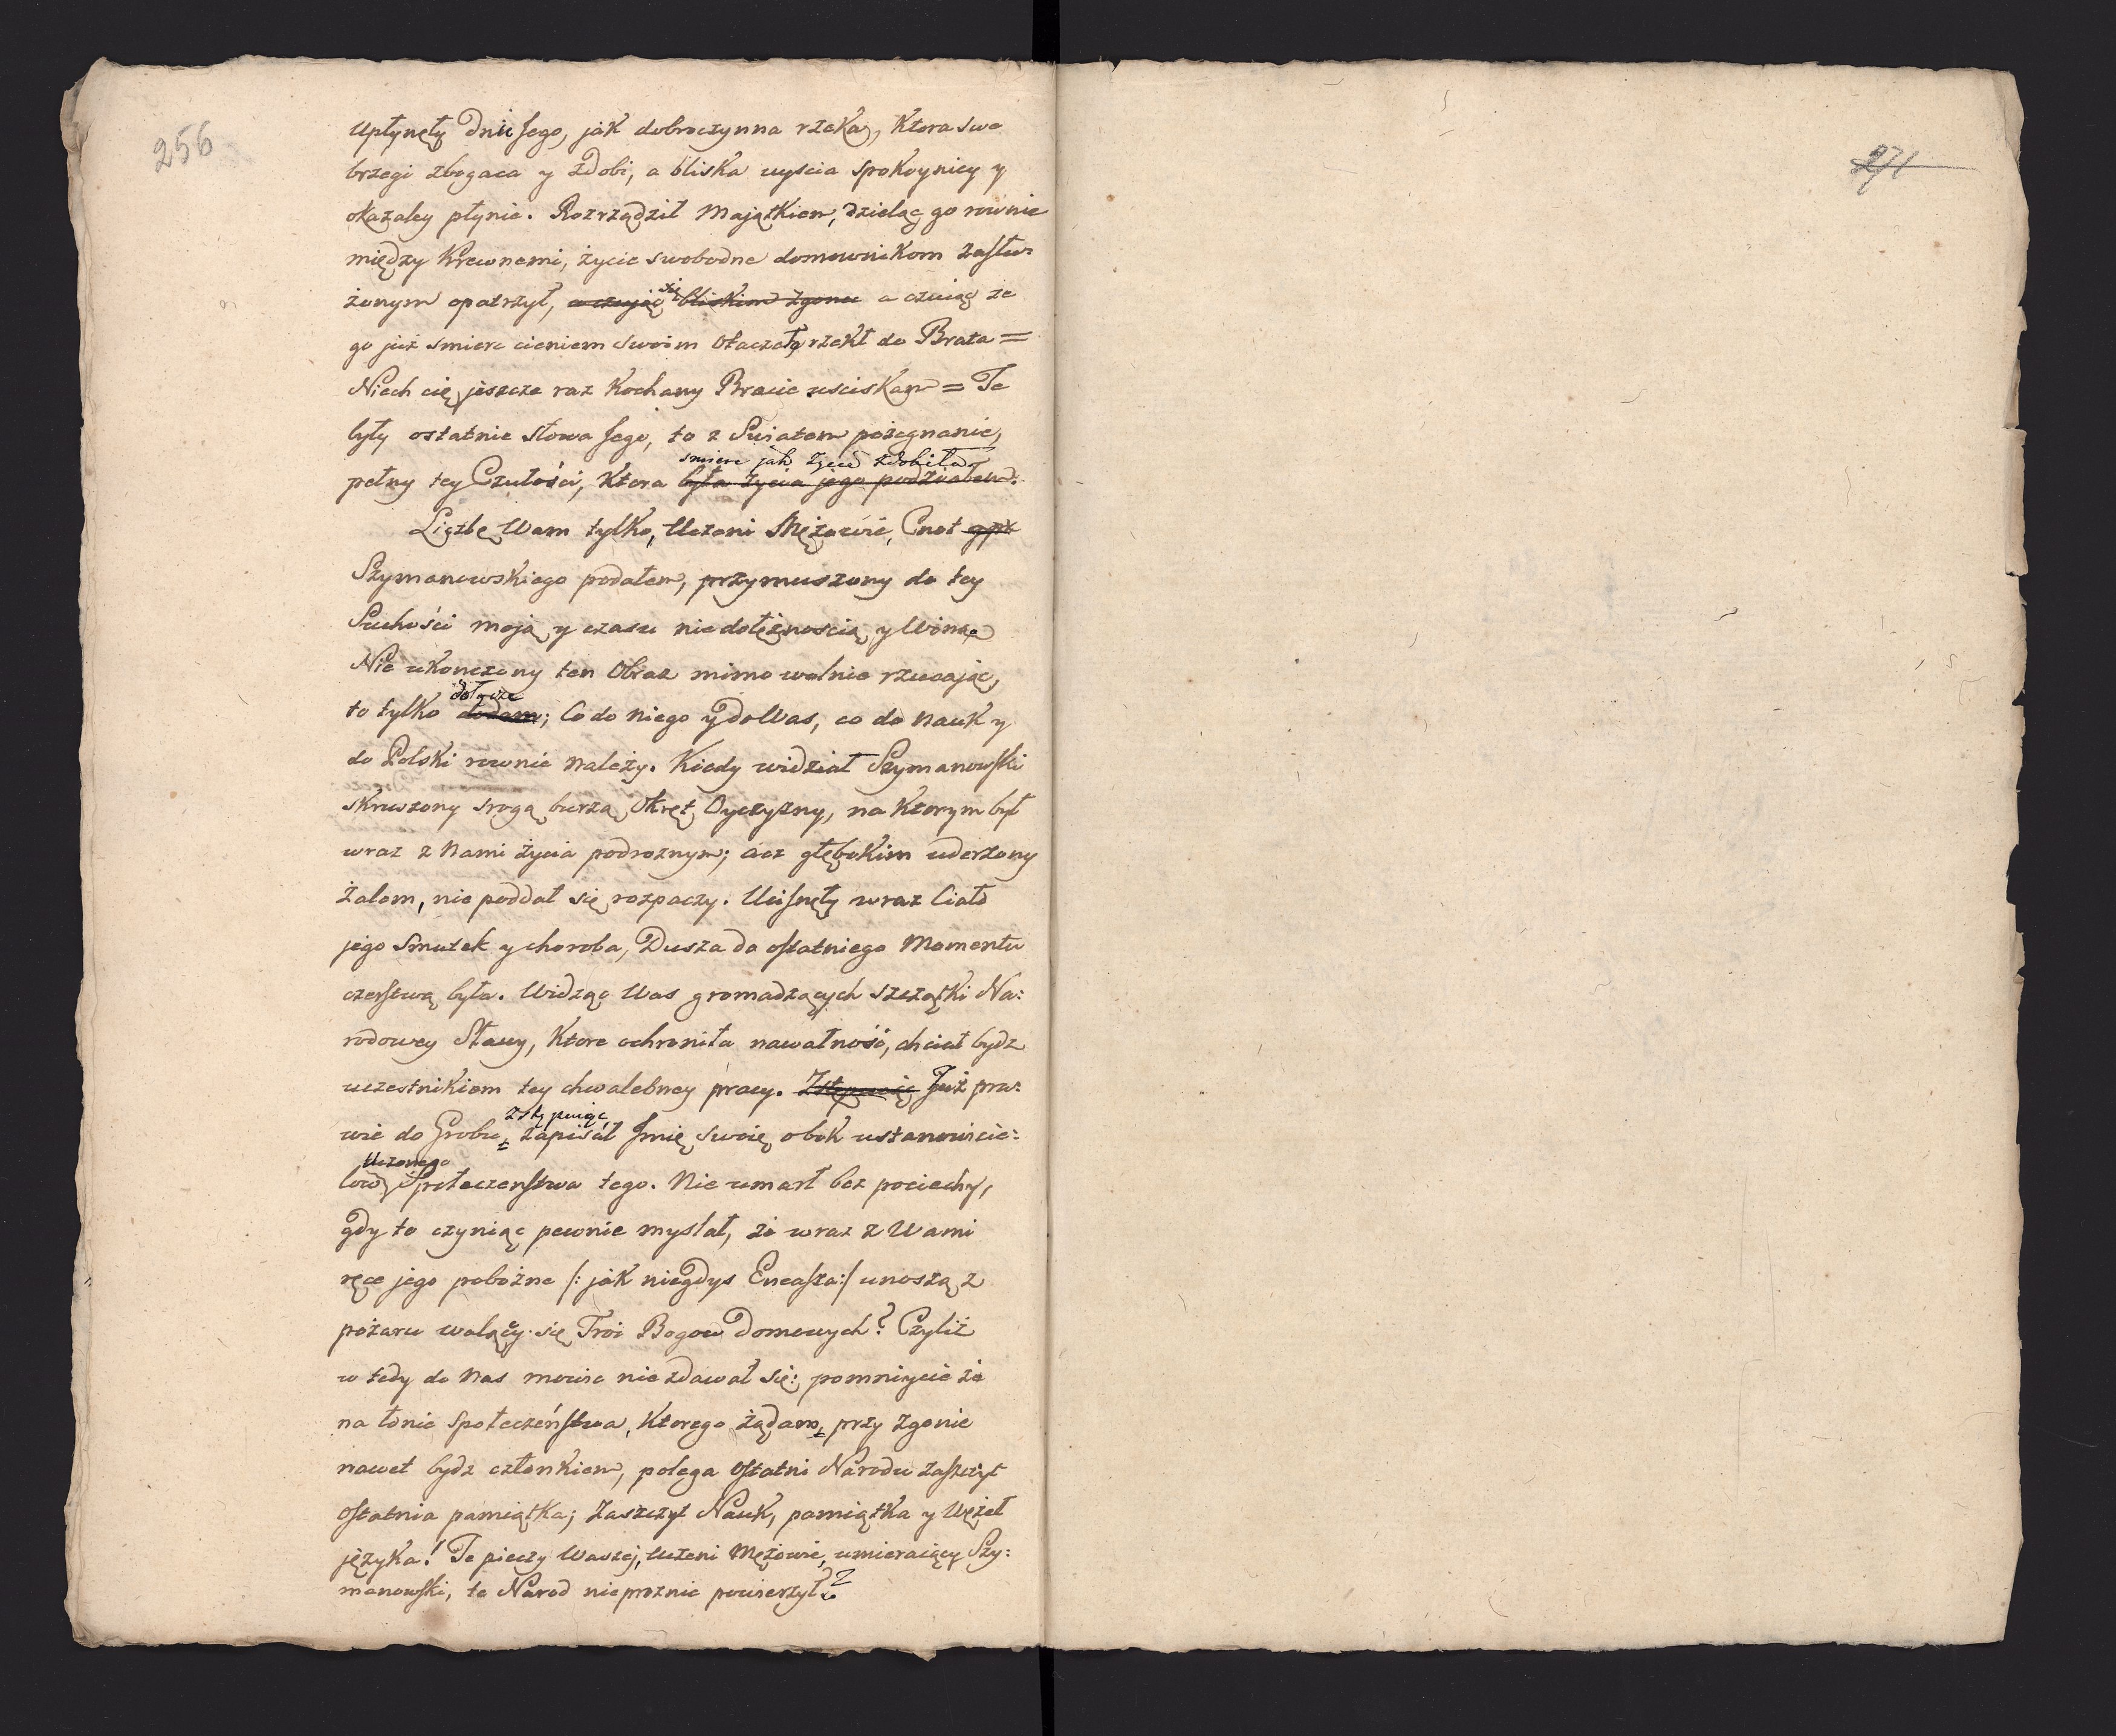 256
271
Upłynęły Dnie Jego, jak dobroczynna rzeka, Ktora swe
brzegi zbogaca y zdobi, a bliska uyscia spokoyniey y
okazaley płynie. Rozrządził Majątkiem, dzieląc go rownie
między Krewnemi, życie swobodne domownikom zasłu=
żonym opatrzył, a czując się bliskim zgonu a czuiąc że
go już smierc cieniem swoim otaczała rzekł do Brata =
Niech cię jeszcze raz Kochany Bracie usciskam = Te
były ostatnie słowa Jego, to z Swiatem pożegnanie,
smierc jak życie zdobiła
pełny tey Czułości, Ktora była życia jego podziałem.
Liczbę Wam tylko, Uczeni Mężowie, Cnot
Szymanowskiego podałem, przymuszony do tey
Suchości moją y czasu niedołężnoscią y Winą
Nie ukonczony ten Obraz mimo wolnie rzucając,
dołącze
to tylko dodam; Co do niego y do Was, co do Nauk y
do Polski rownie należy. Kiedy widział Szymanowski
skruszony srogą burzą Okręt Oyczyzny, na Ktorym był
wraz z Nami życia podroznym; acz głębokim uderzony
żalem, nie poddał się rozpaczy. Ucisnęły wraz Ciało
jego Smutek y choroba, Dusza do ostatniego Momentu
czerstwą była. Widząc Was gromadzących szczątki Na=
rodowey Sławy, Ktore ochroniła nawałność, chciał bydz
uczestnikiem tey chwalebney pracy. Zstępuiąc Już pra=
zstępuiąc
wie do Grobu, zapisał Imię swoię obok ustanowicie=
Uczonego
low Społeczenstwa tego. Nie umarł bez pociechy,
gdy to czyniąc pewnie myslał, że wraz z Wami
ręce jego pobożne /: jak niegdys Eneasza :/ unoszą z
pożaru walącey się Troi Bogow Domowych? Czyliż
w tedy do Nas mowic nie zdawał się: pomniycie że
na łonie Społeczeństwa, Ktorego żądam, przy zgonie
nawet bydz członkiem, polega Ostatni Narodu Zaszczyt
Ostatnia pamiątka; Zaszczyt Nauk, pamiątka y Węzeł
języka! Te pieczy Waszej, Uczeni Mężowie, umieraiący Szy=
manowski, te Narod nieproznie powierzył?